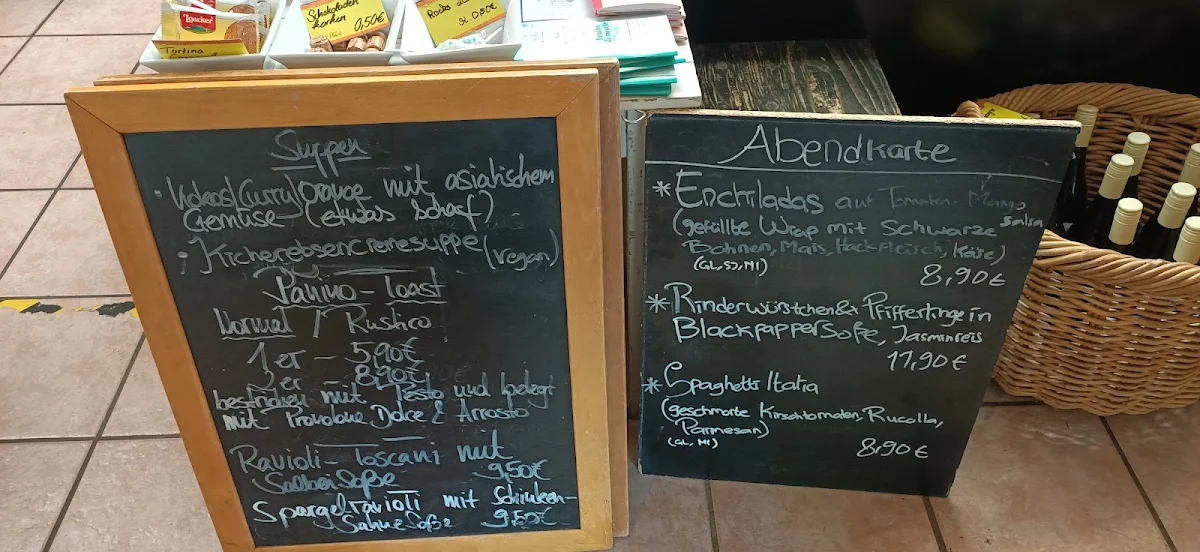 Loacker
Tortina
Schokoladen
korken
0,50€
0,50€
Suppen
Kokos/Curry/Orange mit asiatischem
Gemüse (etwas Scharf)
Kichererbsencremesuppe (vegan)
Panino-Toast
Normal / Rustico
1er - 5,90€
2er - 8,90€
bestrichen mit Pesto und belegt
mit Provolone Dolce & Arrosto
Ravioli-Toscani mit
Salbei Soße 9,50€
Spargelravioli mit Schinken-
Sahne Soße 9,50€
Abendkarte
* Enchiladas auf Tomaten-Mango
Salsa
(gefüllte Wrap mit Schwarze
Bohnen, Mais, Hackfleisch, Käse)
(GL, SJ, MI)
8,90€
* Rinderwürstchen & Pfifferlinge in
Blackpapper Soße, Jasminreis
11,90€
* Spaghetti Italia
(geschmorte Kirschtomaten, Rucolla,
Parmesan)
(GL, MI)
8,90€